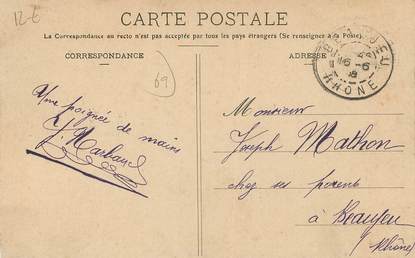 12-6
CARTE POSTALE
La Correspondance au recto n'est pas acceptée par tous les pays étrangers (Se renseigner à la Poste)
CORRESPONDANCE
ADRESSE
69
6-6
RHÔNE
Une poignée de mains
Monsieur
Joseph Mathon
chez ses parents
à Beaujeu
Rhône